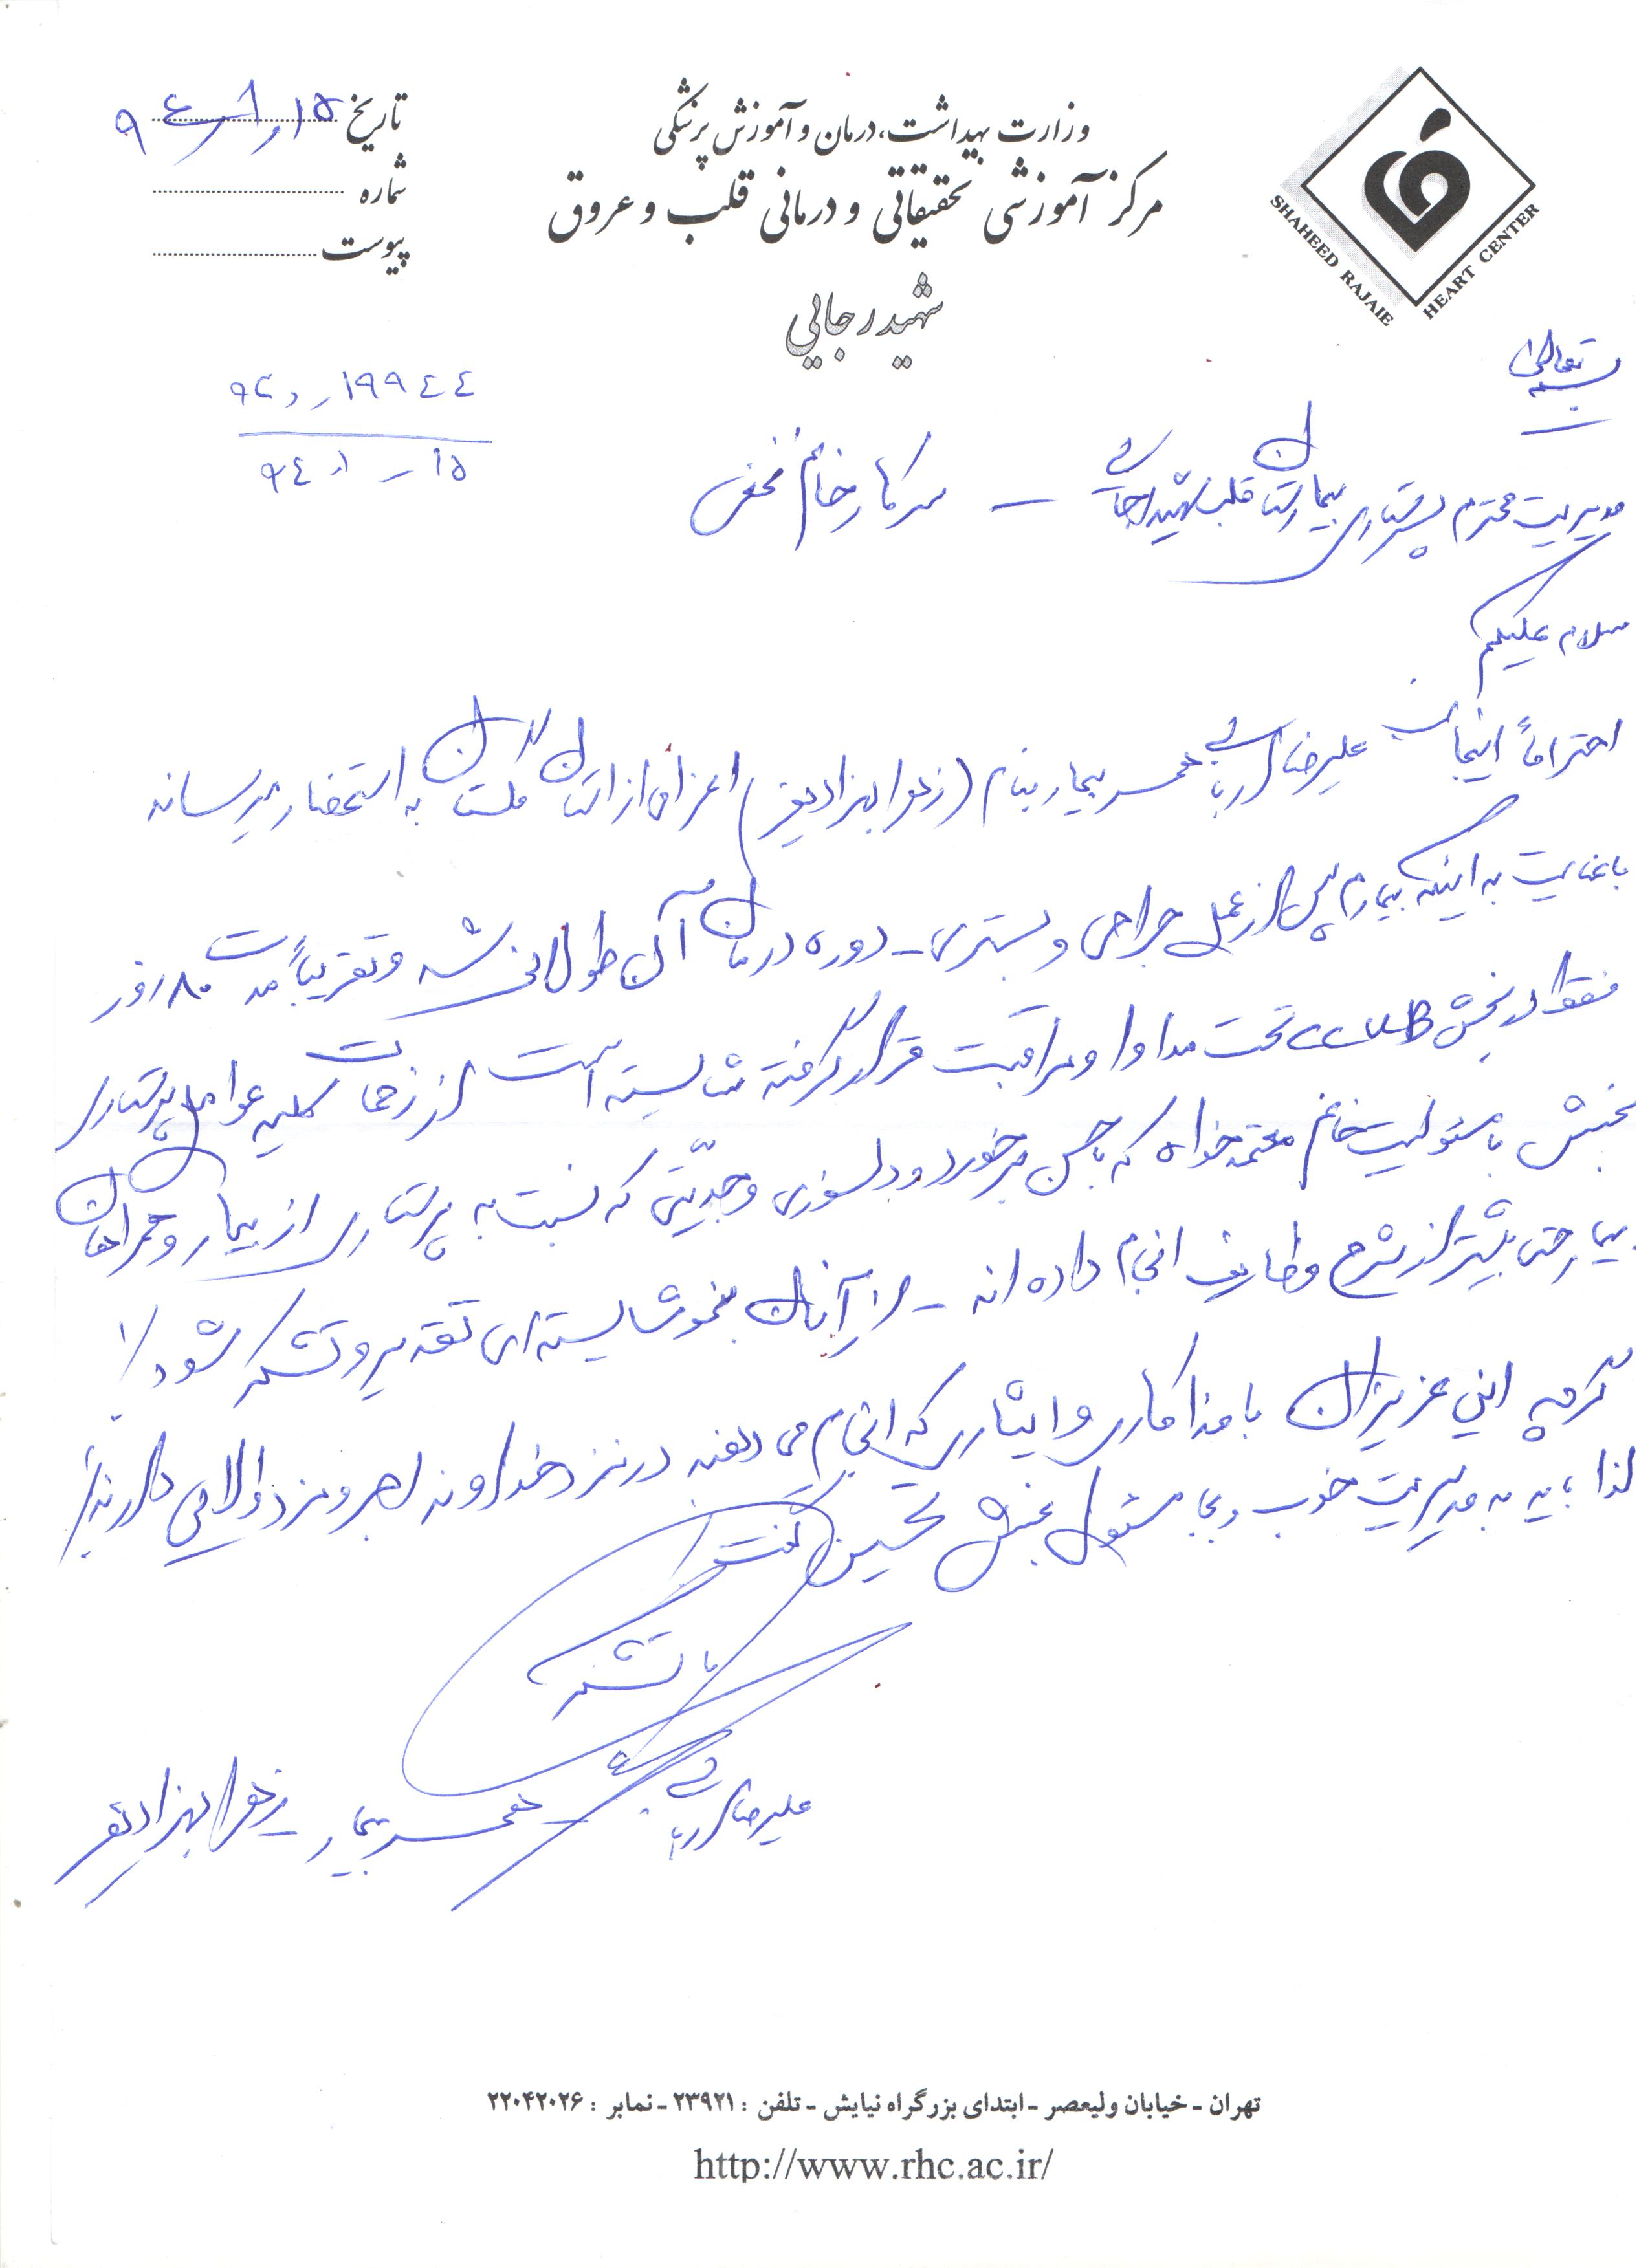 وزارت بهداشت، درمان و آموزش پزشکی
مرکز آموزشی تحقیقاتی و درمانی قلب و عروق
شهید رجایی
SHAHEED RAJAIE HEART CENTER
تاریخ ۹۴/۱/۱۵
شماره
پیوست
بسمه تعالی
۱۹۹۴۴
۱۵
مدیریت محترم پرستاری بیمارستان قلب شهید رجایی – سرکار خانم
سلام علیکم
احتراماً اینجانب علیرضا همسر بیمار بنام (زهرا بهزادیفر) اعزامی از استان گلستان به استحضار میرساند
با عنایت به اینکه بیمارم پس از عمل جراحی و بستری – دوره درمان آن طولانی شده و تقریباً مدت ۸۰ روز
فقط در بخش CCUB تحت مداوا و مراقبت قرار گرفته شایسته است از زحمات کلیه عوامل پرستاری
بخش با مسئولیت خانم معتمدخواه که با حسن برخورد و دلسوزی و جدیّتی که نسبت به پرستاری از بیمار و همراهان
بیمار حتی بیشتر از شرح وظایف انجام داده اند – از آنان بنحو شایسته ای تقدیر و تشکر شود/
گرچه این عزیزان با فداکاری و ایثاری که انجام می دهند در نزد خداوند اجر و مزد والایی دارند/
لذا باید به مدیریت خوب و بجا مسئول بخش تحسین گفت
با تشکر
علیرضا
همسر بیمار زهرا بهزادیفر
تهران - خیابان ولیعصر - ابتدای بزرگراه نیایش - تلفن : ۲۳۹۲۱ - نمابر : ۲۲۰۴۲۰۲۶
http://www.rhc.ac.ir/